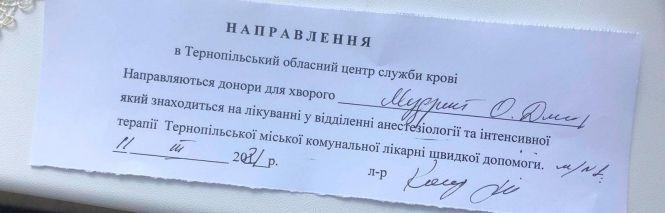 НАПРАВЛЕННЯ
в Тернопільський обласний центр служби крові
Направляються донори для хворого Мудрий О. Дми
який знаходиться на лікуванні у відділенні анестезіології та інтенсивної
терапії Тернопільської міської комунальної лікарні швидкої допомоги.
11 III 2021 р. л-р